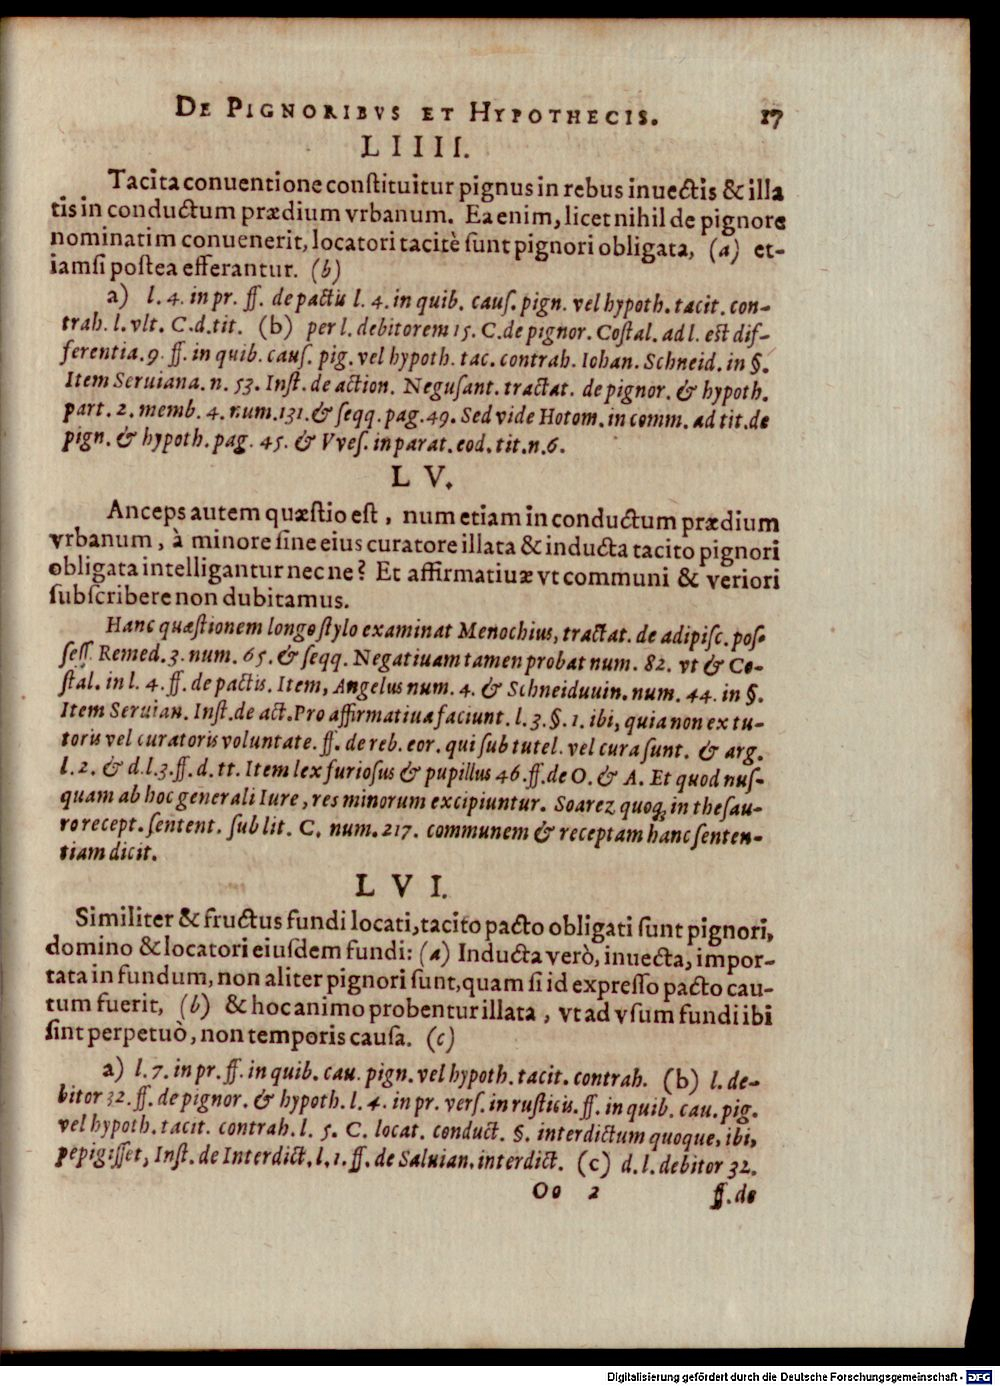 DE PIGNORIBVS ET HYPOTHECIS. 17
LIIII.
Tacita conuentione constituitur pignus in rebus inuectis & illa
tis in conductum prædium vrbanum. Ea enim, licet nihil de pignore
nominatim conuenerit, locatori tacitè sunt pignori obligata, (a) et-
iamsi postea efferantur. (b)
a) l. 4. in pr. ff. de pactis l. 4. in quib. caus. pign. vel hypoth. tacit. con-
trah. l. vlt. C. d. tit. (b) per l. debitorem 15. C. de pignor. Costal. ad l. est dif-
ferentia. 9. ff. in quib. caus. pig. vel hypoth. tac. contrah. Iohan. Schneid. in §.
Item Seruiana. n. 53. Inst. de action. Negusant. tractat. de pignor. & hypoth.
part. 2. memb. 4. num. 131. & seqq. pag. 49. Sed vide Hotom. in comm. ad tit. de
pign. & hypoth. pag. 45. & Vves. in parat. eod. tit. n. 6.
LV.
Anceps autem quæstio est, num etiam in conductum prædium
vrbanum, à minore sine eius curatore illata & inducta tacito pignori
obligata intelligantur nec ne? Et affirmatiuæ vt communi & veriori
subscribere non dubitamus.
Hanc quæstionem longo stylo examinat Menochius, tractat. de adipisc. pos-
sess. Remed. 3. num. 65. & seqq. Negatiuam tamen probat num. 82. vt & Co-
stal. in l. 4. ff. de pactis. Item, Angelus num. 4. & Schneiduuin. num. 44. in §.
Item Seruian. Inst. de act. Pro affirmatiua faciunt. l. 3. §. 1. ibi, quia non ex tu-
toris vel curatoris voluntate. ff. de reb. eor. qui sub tutel. vel cura sunt. & arg.
l. 2. & d. l. 3. ff. d. tt. Item lex furiosus & pupillus 46. ff. de O. & A. Et quod nus-
quam ab hoc generali Iure, res minorum excipiuntur. Soarez quoq; in thesau-
ro recept. sentent. sub lit. C. num. 217. communem & receptam hanc senten-
tiam dicit.
LVI.
Similiter & fructus fundi locati, tacito pacto obligati sunt pignori,
domino & locatori eiusdem fundi: (a) Inducta verò, inuecta, impor-
tata in fundum, non aliter pignori sunt, quam si id expresso pacto cau-
tum fuerit, (b) & hoc animo probentur illata, vt ad vsum fundi ibi
sint perpetuò, non temporis causa. (c)
a) l. 7. in pr. ff. in quib. cau. pign. vel hypoth. tacit. contrah. (b) l. de-
bitor 32. ff. de pignor. & hypoth. l. 4. in pr. vers. in rusticis. ff. in quib. cau. pig.
vel hypoth. tacit. contrah. l. 5. C. locat. conduct. §. interdictum quoque, ibi,
pepigisset, Inst. de Interdict. l. 1. ff. de Saluian. interdict. (c) d. l. debitor 32.
Oo 2 ff. de
Digitalisierung gefördert durch die Deutsche Forschungsgemeinschaft - DFG